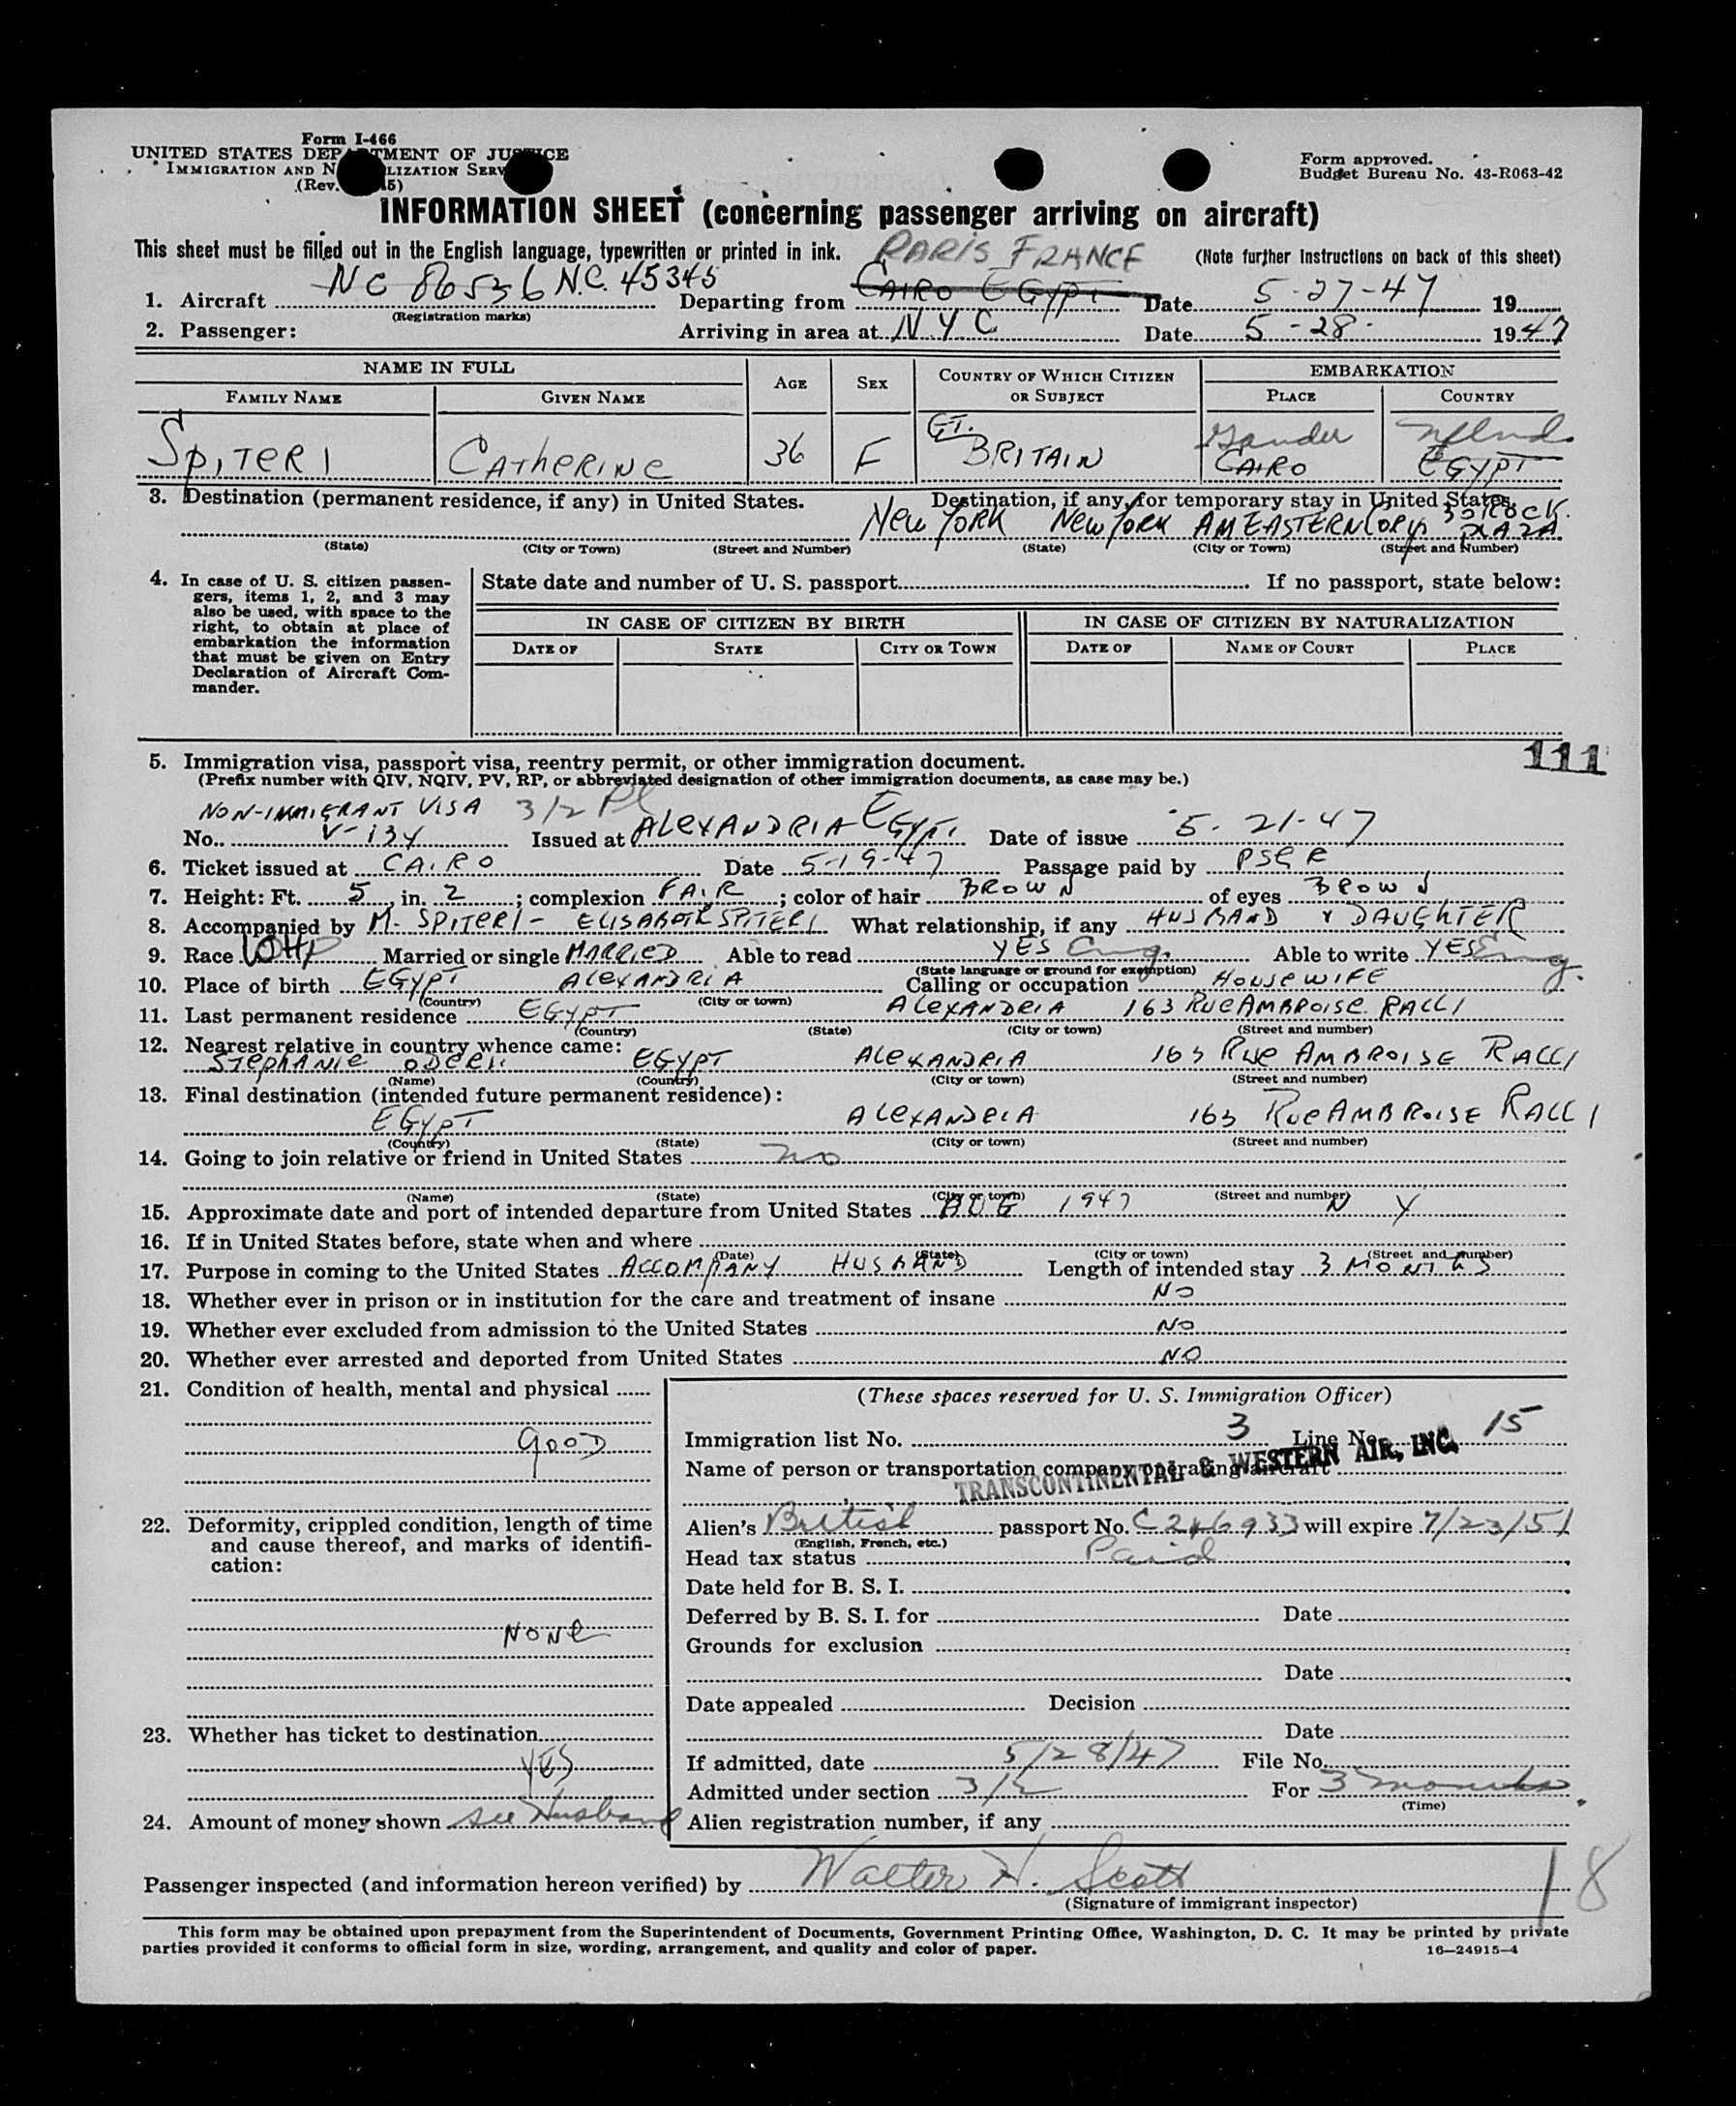 Form I-466
UNITED STATES DEPARTMENT OF JUSTICE
IMMIGRATION AND NATURALIZATION SERV
(Rev. 5)
Form approved.
Budget Bureau No. 43-R063-42
INFORMATION SHEET (concerning passenger arriving on aircraft)
This sheet must be filled out in the English language, typewritten or printed in ink. PARIS FRANCE (Note further instructions on back of this sheet)
1. Aircraft NC 86536 N.C. 45345 Departing from CAIRO EGYPT Date 5-27-47 19
(Registration marks)
2. Passenger: Arriving in area at NYC Date 5-28- 1947
NAME IN FULL AGE SEX COUNTRY OF WHICH CITIZEN OR SUBJECT EMBARKATION
FAMILY NAME GIVEN NAME PLACE COUNTRY
GT. Gander Nflnd
SPITERI CATHERINE 36 F BRITAIN CAIRO EGYPT
3. Destination (permanent residence, if any) in United States. Destination, if any, for temporary stay in United States.
NEW YORK NEW YORK AM EASTERN CORP. ROCK. PLAZA
(State) (City or Town) (Street and Number) (State) (City or Town) (Street and Number)
4. In case of U. S. citizen passengers, items 1, 2, and 3 may also be used, with space to the right, to obtain at place of embarkation the information that must be given on Entry Declaration of Aircraft Commander.
State date and number of U. S. passport If no passport, state below:
IN CASE OF CITIZEN BY BIRTH IN CASE OF CITIZEN BY NATURALIZATION
DATE OF STATE CITY OR TOWN DATE OF NAME OF COURT PLACE
111
5. Immigration visa, passport visa, reentry permit, or other immigration document.
(Prefix number with QIV, NQIV, PV, RP, or abbreviated designation of other immigration documents, as case may be.)
NON-IMMIGRANT VISA 3/2
No. V-134 Issued at ALEXANDRIA EGYPT Date of issue 5-21-47
6. Ticket issued at CAIRO Date 5-19-47 Passage paid by PSGR
7. Height: Ft. 5, in. 2; complexion FAIR; color of hair BROWN of eyes BROWN
8. Accompanied by M. SPITERI - SPITERI What relationship, if any HUSBAND & DAUGHTER
9. Race Married or single MARRIED Able to read YES Eng. Able to write YES Eng.
(State language or ground for exemption)
10. Place of birth EGYPT ALEXANDRIA Calling or occupation HOUSEWIFE
(Country) (City or town)
11. Last permanent residence EGYPT ALEXANDRIA 163 RUE AMBROISE RALLI
(Country) (State) (City or town) (Street and number)
12. Nearest relative in country whence came:
STEPHANIE EGYPT ALEXANDRIA 163 RUE AMBROISE RALLI
(Name) (Country) (City or town) (Street and number)
13. Final destination (intended future permanent residence):
EGYPT ALEXANDRIA 163 RUE AMBROISE RALLI
(Country) (State) (City or town) (Street and number)
14. Going to join relative or friend in United States no
(Name) (State) (City or town) (Street and number)
15. Approximate date and port of intended departure from United States AUG 1947 N Y
16. If in United States before, state when and where
(Date) (State) (City or town) (Street and number)
17. Purpose in coming to the United States ACCOMPANY HUSBAND Length of intended stay 3 MONTHS
18. Whether ever in prison or in institution for the care and treatment of insane NO
19. Whether ever excluded from admission to the United States NO
20. Whether ever arrested and deported from United States NO
21. Condition of health, mental and physical
GOOD
22. Deformity, crippled condition, length of time and cause thereof, and marks of identification:
NONE
23. Whether has ticket to destination
YES
24. Amount of money shown see Husband
(These spaces reserved for U. S. Immigration Officer)
Immigration list No. 3 Line No. 15
Name of person or transportation company operating aircraft
TRANSCONTINENTAL & WESTERN AIR, INC.
Alien's British passport No. C246933 will expire 7/23/51
(English, French, etc.)
Head tax status Paid
Date held for B. S. I.
Deferred by B. S. I. for Date
Grounds for exclusion
Date
Date appealed Decision
Date
If admitted, date 5/28/47 File No.
Admitted under section 3/2 For 3 months
(Time)
Alien registration number, if any
Passenger inspected (and information hereon verified) by Walter H. Scott
(Signature of immigrant inspector)
18
This form may be obtained upon prepayment from the Superintendent of Documents, Government Printing Office, Washington, D. C. It may be printed by private
parties provided it conforms to official form in size, wording, arrangement, and quality and color of paper.
16—24915-4